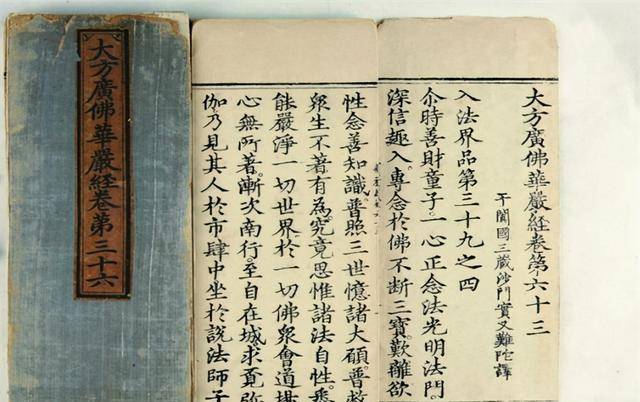 大方廣佛華嚴經卷第六十三
于闐國三藏沙門實叉難陀譯
入法界品第三十九之四
尒時善財童子。一心正念法光明法門。
深信趣入。專念於佛不斷三寶。歎離欲
性念善知識。普照三世憶諸大願。普救
眾生不著有為。究竟思惟諸法自性。悉
能嚴淨一切世界。於一切佛眾會道場
心無所著。漸次南行。至自在城。求覓弥
伽乃見其人於市肆中坐於說法師子
大方廣佛華嚴經卷第三十六